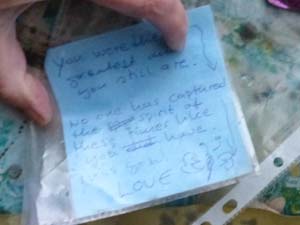 You were the
greatest
you still are.
No one has captured
the spirit of
these times like
you have.
LOVE